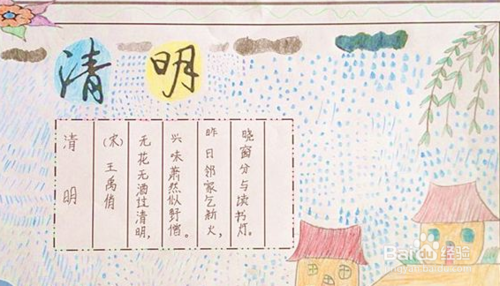 清明
清明
(宋)王禹偁
无花无酒过清明，
兴味萧然似野僧。
昨日邻家乞新火，
晓窗分与读书灯。
Baidu经验
jingyan.baidu.com